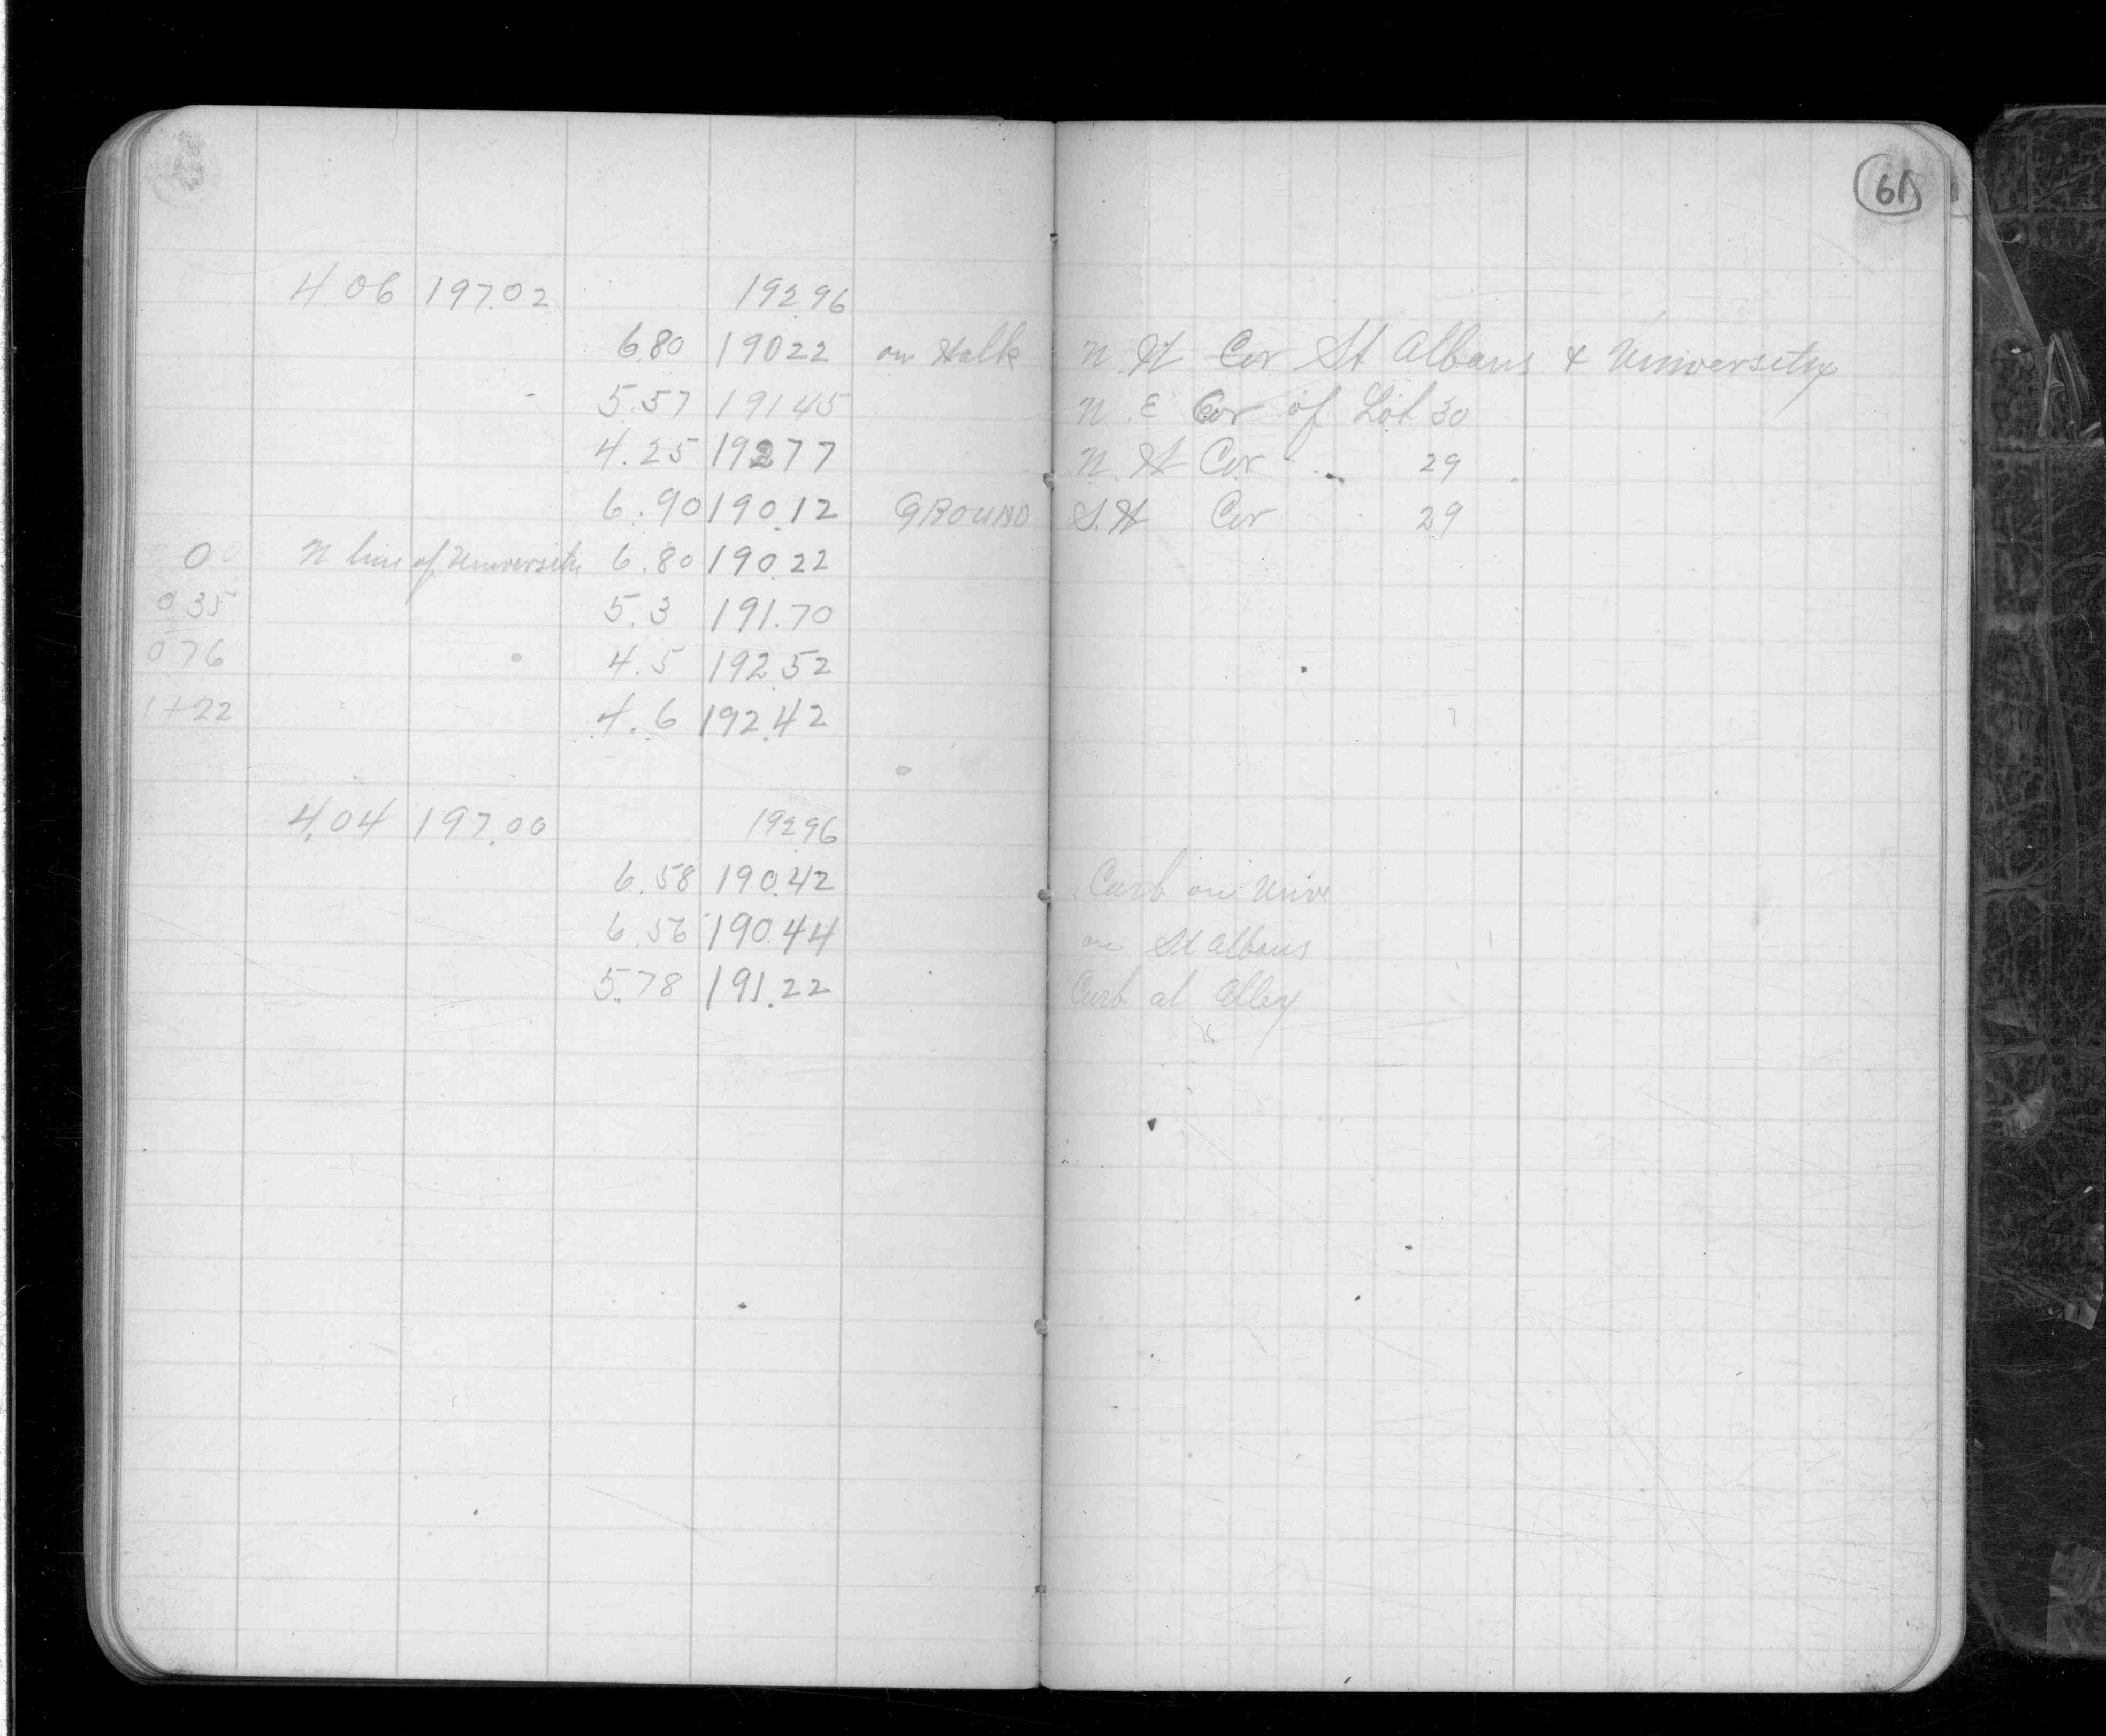 61
4 06 197.02 192.96
6.80 190 22 on Walk N. W Cor St Albans & University
5.57 191 45 N. E Cor of Lot 30
4.25 192 77 N. W Cor " " 29
6.90 190.12 GROUND S. W Cor " " 29
00 N line of University 6.80 190 22
0 35 5.3 191.70
0 76 4.5 192.52
1+22 4.6 192.42
4.04 197.00 192.96
6.58 190.42 Curb on Univ
6.56 190.44 on St Albans
5.78 191.22 Curb at Alley